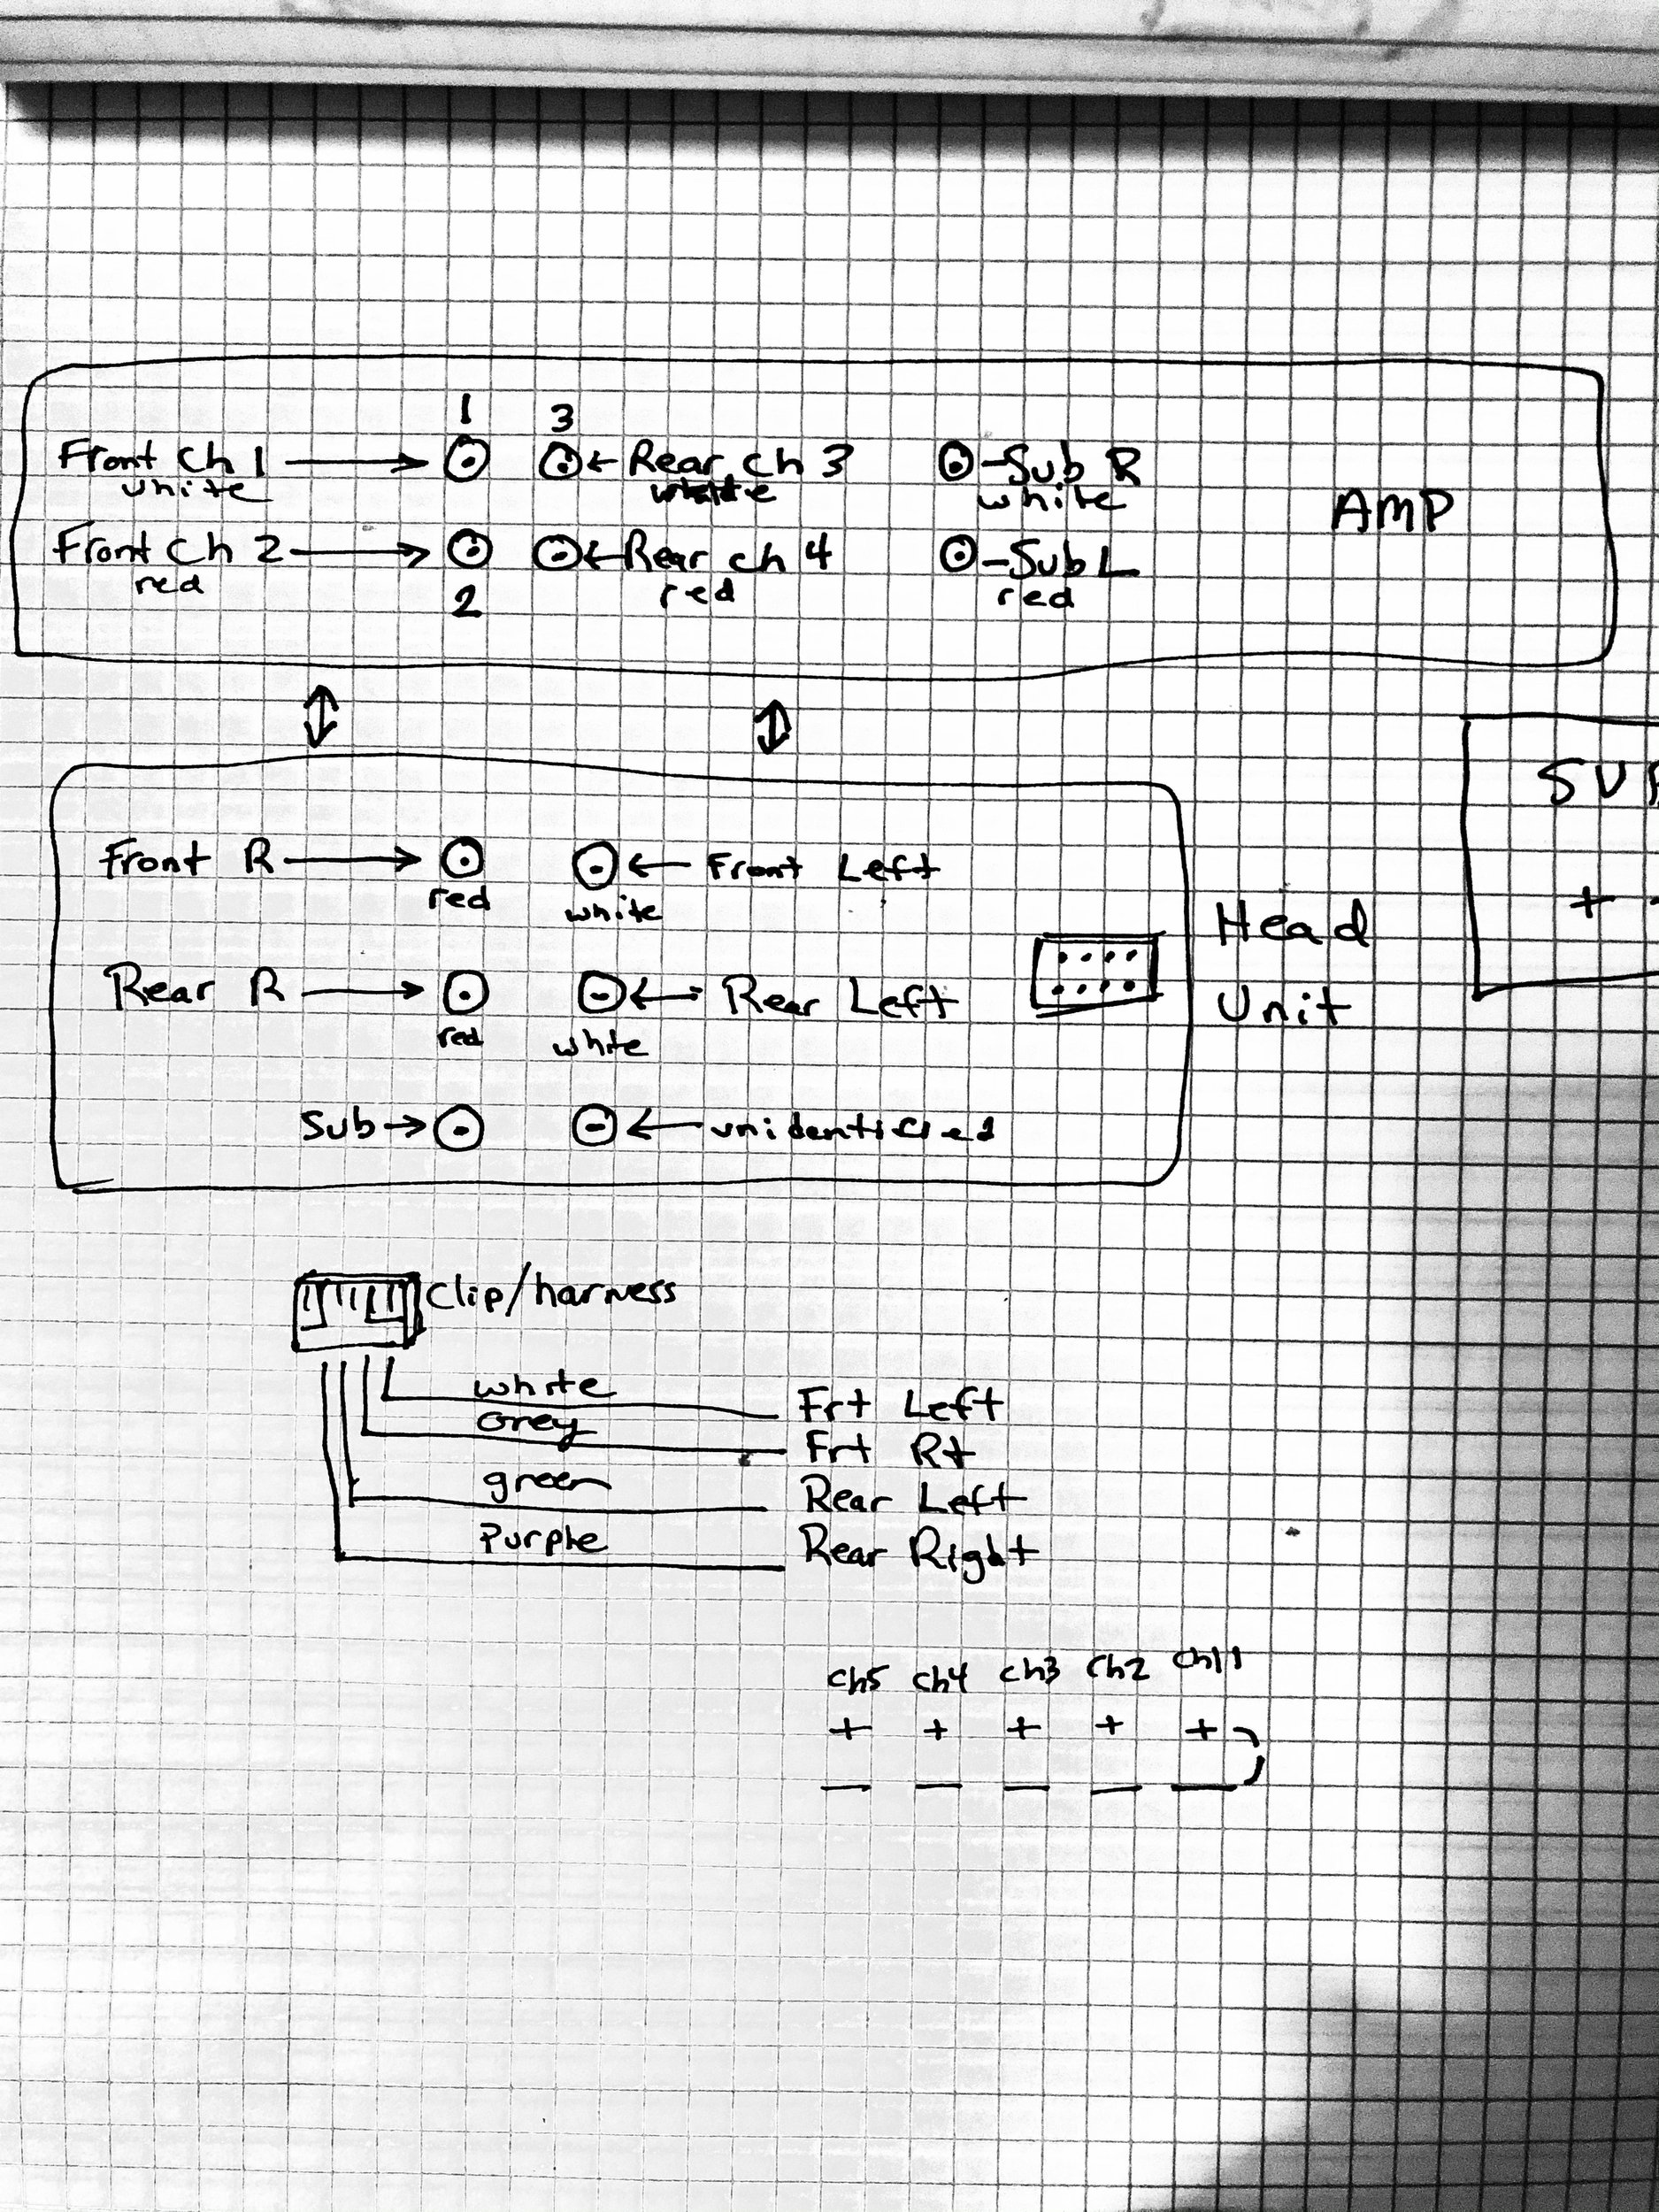 1 3
Front Ch 1 Rear ch 3 Sub R
white white white
AMP
Front Ch 2 Rear ch 4 Sub L
red red red
2
Front R Front Left
red white
Head
Rear R Rear Left
Unit
red white
Sub unidentified
+
clip/harness
white Frt Left
Grey Frt Rt
green Rear Left
Purple Rear Right
ch5 ch4 ch3 ch2 ch1
+ + + + +
— — — — —